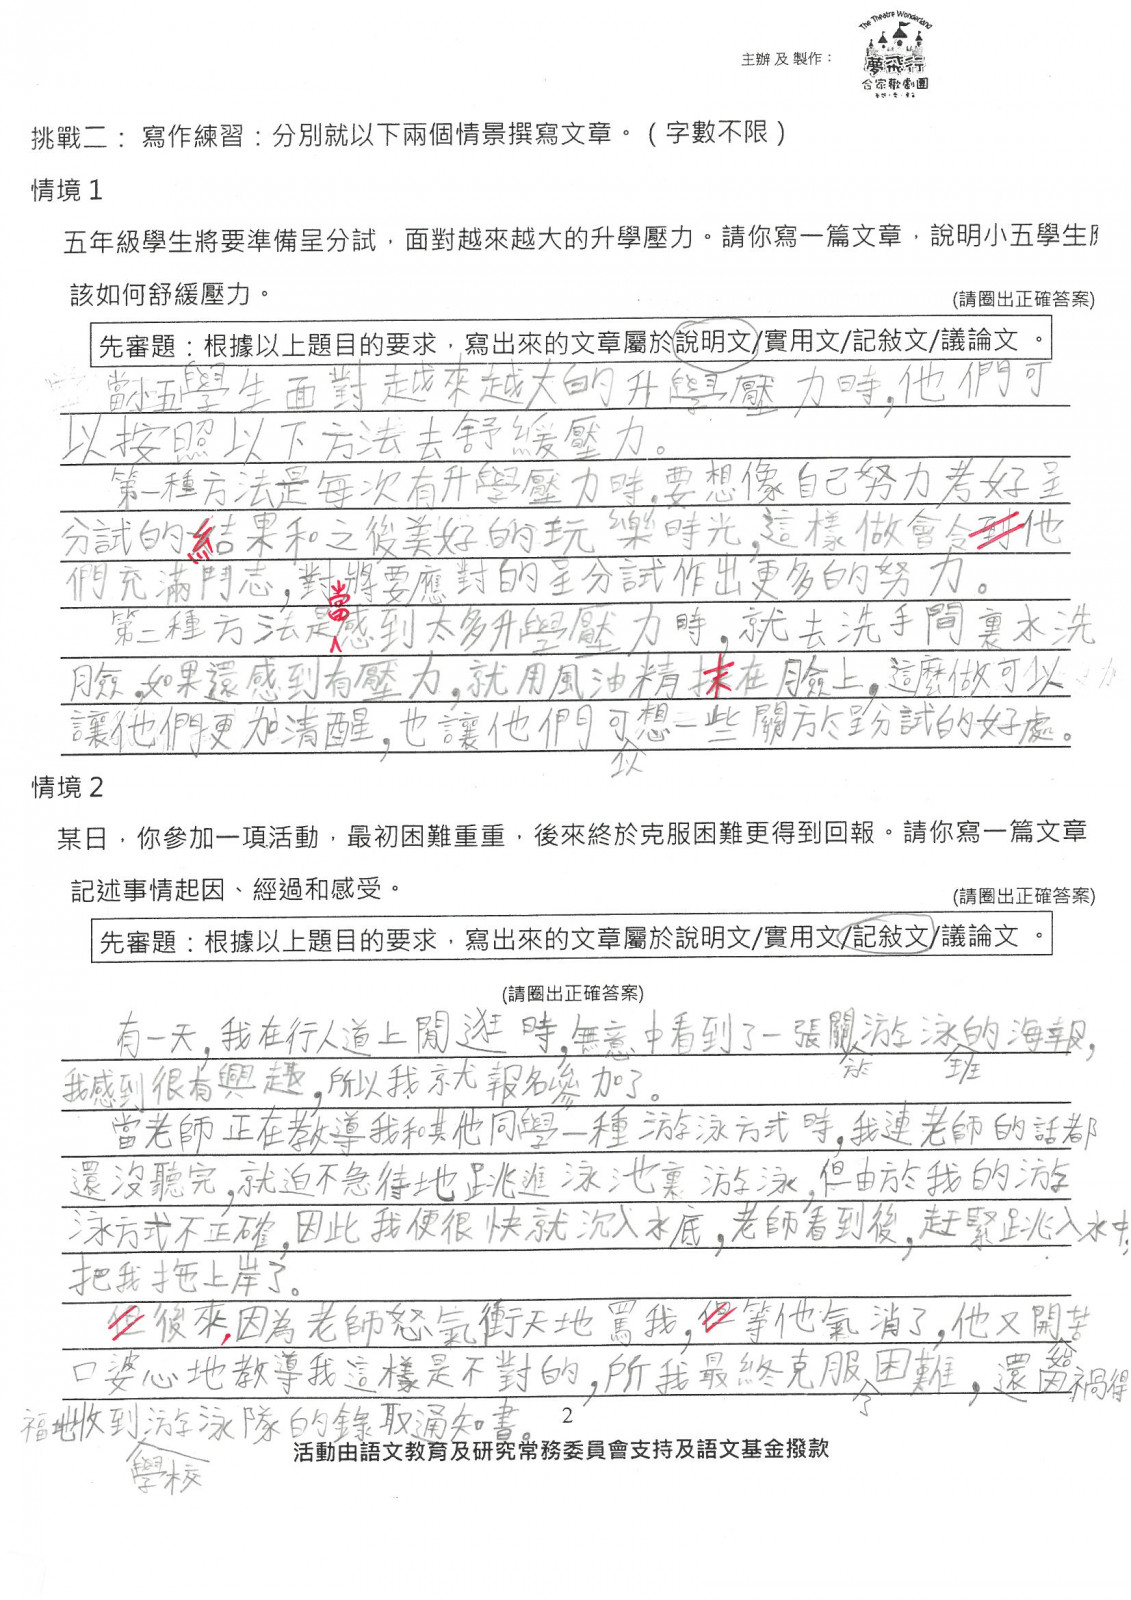 主辦 及 製作：
The Theatre Wonderland
夢飛行
合家歌劇團
挑戰二： 寫作練習：分別就以下兩個情景撰寫文章。（字數不限）
情境 1
五年級學生將要準備呈分試，面對越來越大的升學壓力。請你寫一篇文章，說明小五學生
該如何舒緩壓力。
(請圈出正確答案)
先審題：根據以上題目的要求，寫出來的文章屬於說明文/實用文/記敍文/議論文 。
當小五學生面對越來越大的升學壓力時,他們可
以按照以下方法去舒緩壓力。
第一種方法是每次有升學壓力時,要想像自己努力考好呈
分試的結果和之後美好的玩樂時光,這樣做會令到他
們充滿鬥志,對將要應對的呈分試作出更多的努力。
第二種方法是當感到太多升學壓力時,就去洗手間裏水洗
臉,如果還感到有壓力,就用風油精抹在臉上,這麼做可以
讓他們更加清醒,也讓他們可以想一些關於呈分試的好處。
情境 2
某日，你參加一項活動，最初困難重重，後來終於克服困難更得到回報。請你寫一篇文章
記述事情起因、經過和感受。
(請圈出正確答案)
先審題：根據以上題目的要求，寫出來的文章屬於說明文/實用文/記敍文/議論文 。
(請圈出正確答案)
有一天,我在行人道上閒逛時,無意中看到了一張關於游泳班的海報,
我感到很有興趣,所以我就報名參加了。
當老師正在教導我和其他同學一種游泳方式時,我連老師的話都
還沒聽完,就迫不急待地跳進泳池裏游泳,但由於我的游
泳方式不正確,因此我便很快就沉入水底,老師看到後,趕緊跳入水中,
把我拖上岸了。
但後來,因為老師怒氣衝天地罵我,但等他氣消了,他又開始苦
口婆心地教導我這樣是不對的,所令我最終克服困難,還因禍得
福地收到學校游泳隊的錄取通知書。
2
活動由語文教育及研究常務委員會支持及語文基金撥款